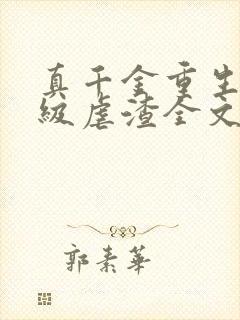 真千金重生
级虐渣全文
郭素华